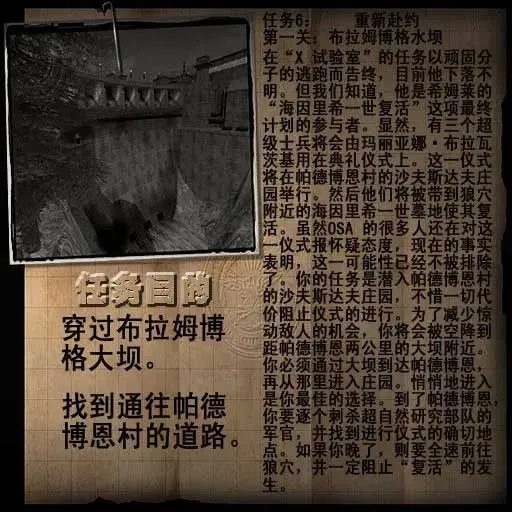 任务6:     重新赴约
第一关: 布拉姆博格水坝
在“X 试验室”的任务以顽固分
子的逃跑而告终，目前他下落不
明。但我们知道，他是希姆莱的
“海因里希一世复活”这项最终
计划的参与者。显然，有三个超
级士兵将会由玛丽亚娜·布拉瓦
茨基用在典礼仪式上。这一仪式
将在帕德博恩村的沙夫斯达夫庄
园举行。然后他们将被带到狼穴
附近的海因里希一世墓地使其复
活。虽然OSA 的很多人还在对这
一仪式报怀疑态度，现在的事实
表明，这一可能性已经不被排除
了。你的任务是潜入帕德博恩村
的沙夫斯达夫庄园，不惜一切代
价阻止仪式的进行。为了减少惊
动敌人的机会，你将会被空降到
距帕德博恩两公里的大坝附近。
你必须通过大坝到达帕德博恩，
再从那里进入庄园。悄悄地进入
是你最佳的选择。到了帕德博恩，
你要逐个刺杀超自然研究部队的
军官，并找到进行仪式的确切地
点。如果你晚了，则要全速前往
狼穴，并一定阻止“复活”的发
生。
任务目的
穿过布拉姆博
格大坝。
找到通往帕德
博恩村的道路。